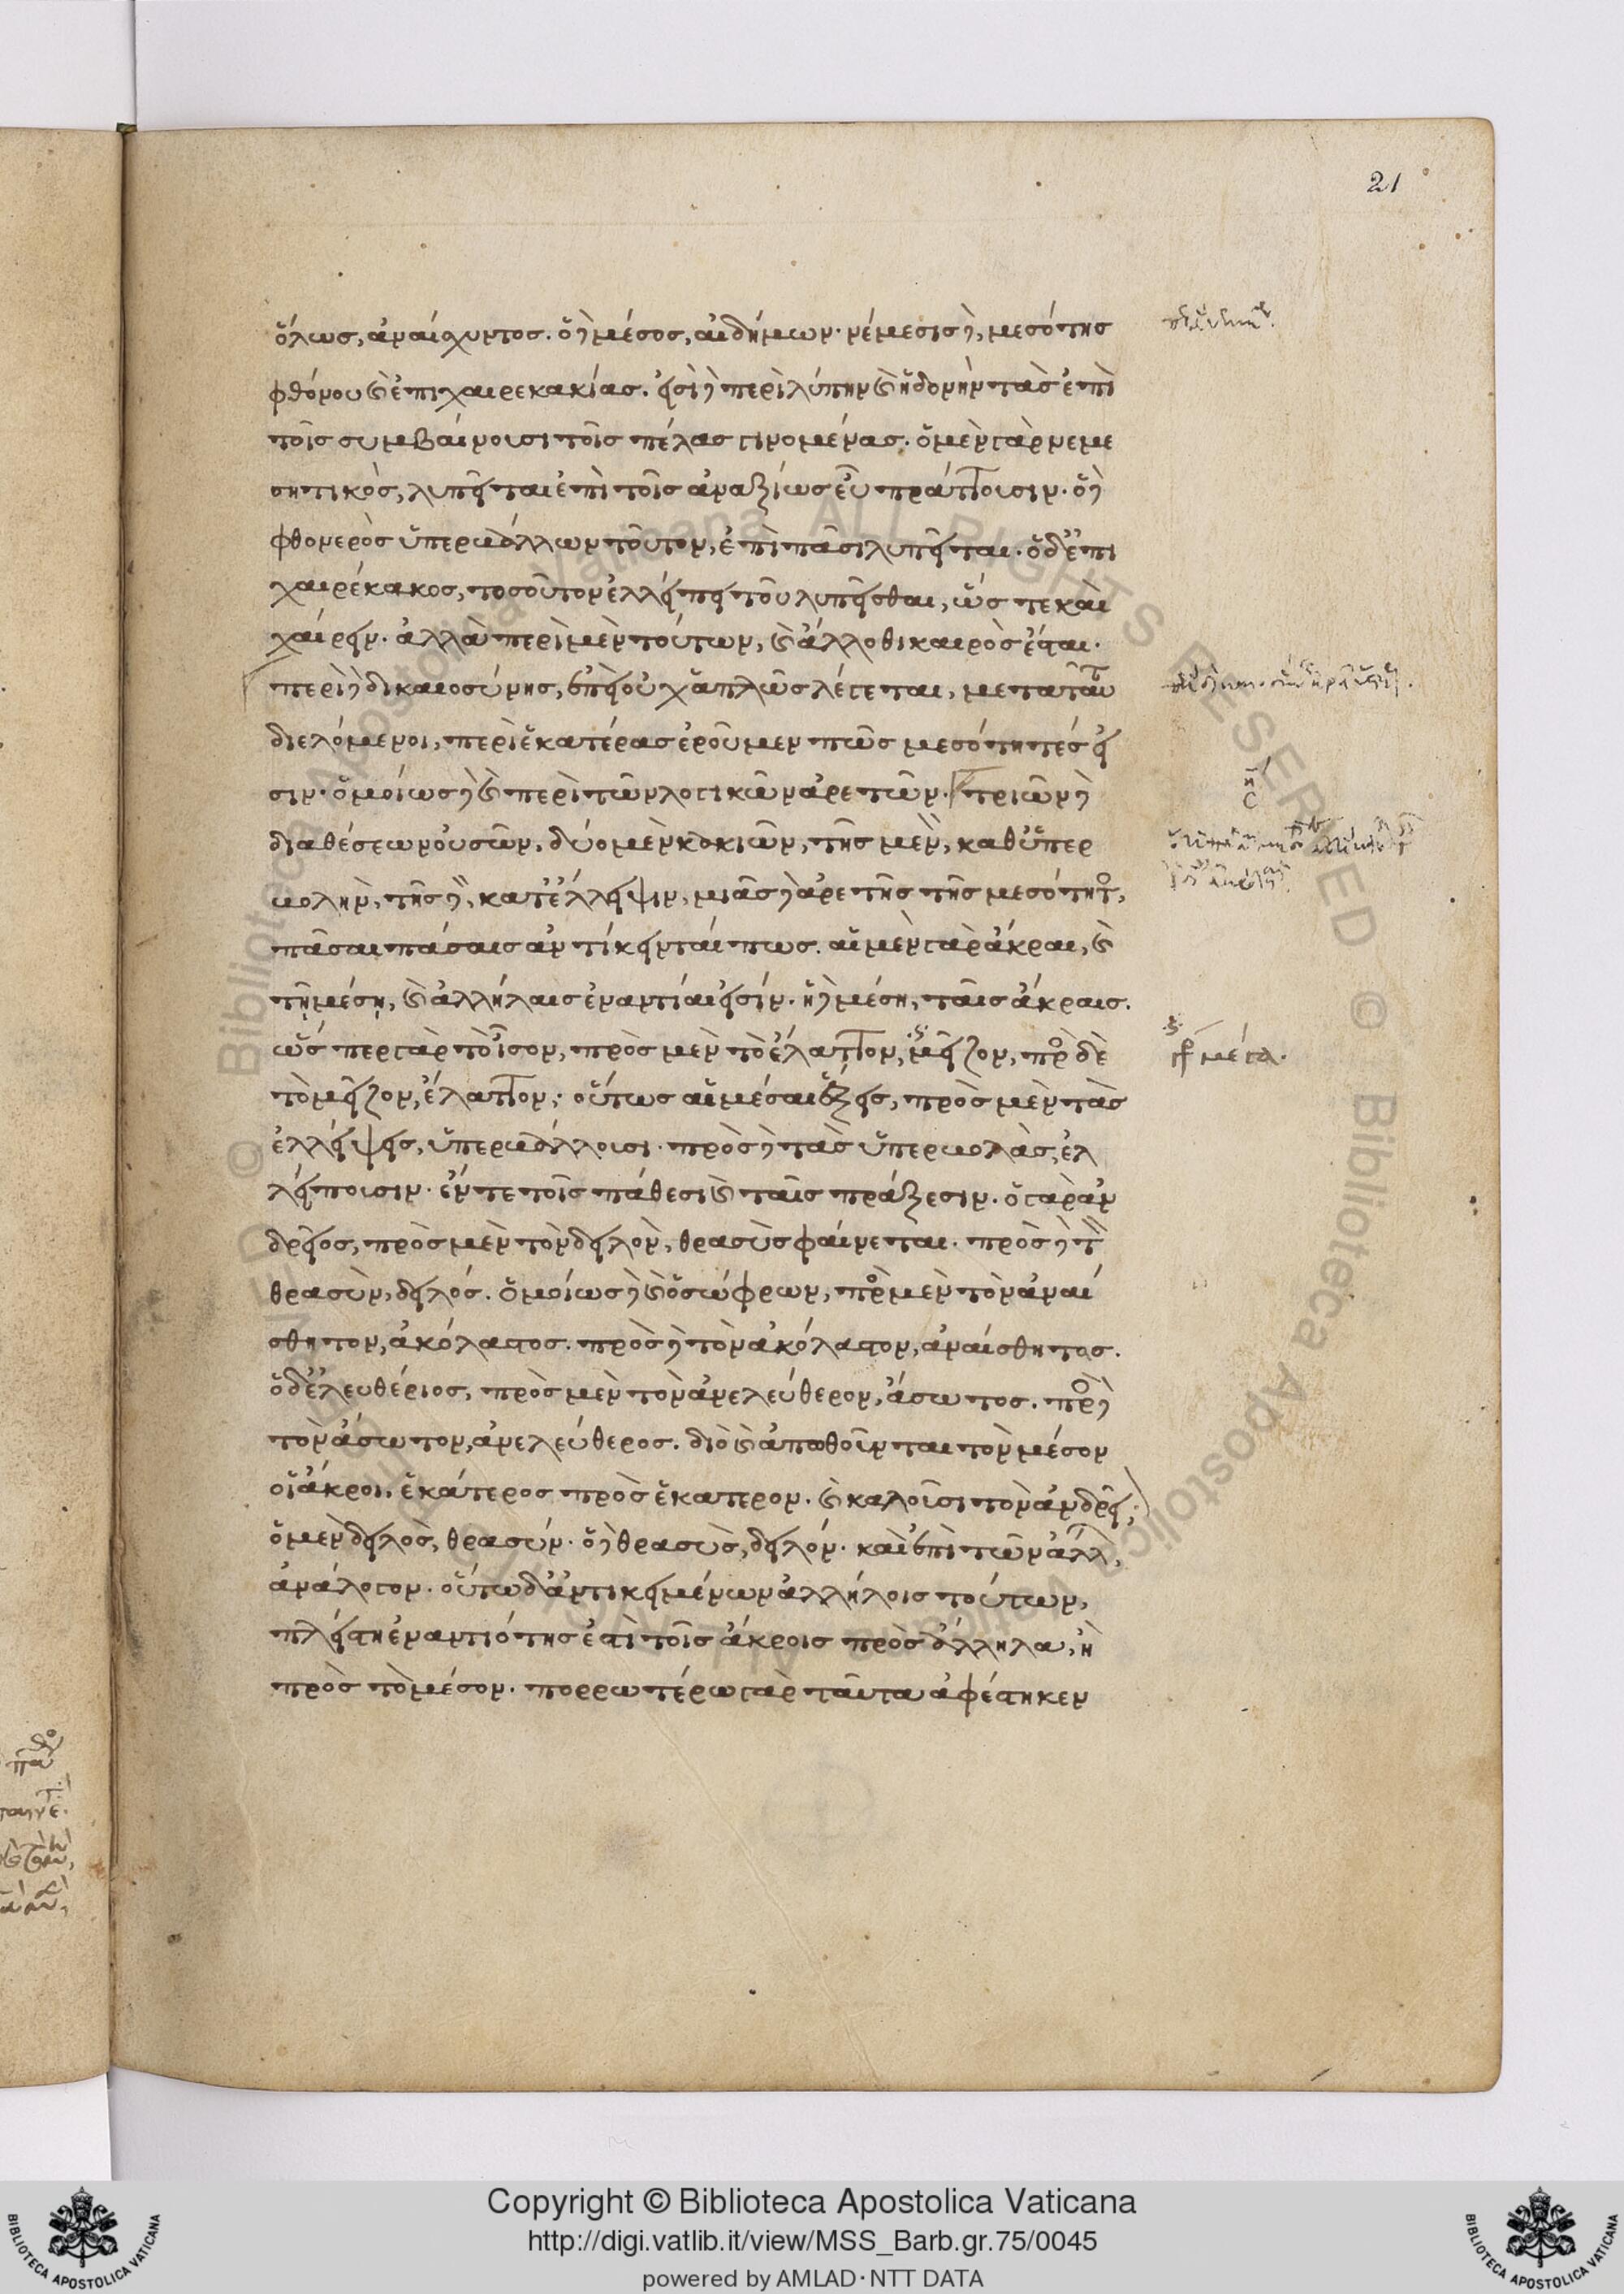 21
ὅλως, ἀναίσχυντος. ὁ δὲ μέσος, αἰδήμων· νέμεσις δὲ, μεσότης
φθόνου καὶ ἐπιχαιρεκακίας. εἰσὶ δὲ περὶ λύπην καὶ ἡδονὴν τὰς ἐπὶ
τοῖς συμβαίνουσι τοῖς πέλας γινομένας· ὁ μὲν γὰρ νεμε
σητικὸς, λυπεῖται ἐπὶ τοῖς ἀναξίως εὖ πράττουσιν· ὁ δὲ
φθονερὸς ὑπερβάλλων τοῦτον, ἐπὶ πᾶσι λυπεῖται· ὁ δ' ἐπι
χαιρέκακος, τοσοῦτον ἐλλείπει τοῦ λυπεῖσθαι, ὥς τε καὶ
χαίρειν· ἀλλὰ περὶ μὲν τούτων, καὶ ἄλλοθι καιρὸς ἔσται·
περὶ δὲ δικαιοσύνης, ἐπεὶ οὐχ ἁπλῶς λέγεται, μετὰ ταῦτα
διελόμενοι, περὶ ἑκατέρας ἐροῦμεν πῶς μεσότητές εἰ
σιν· ὁμοίως δὲ καὶ περὶ τῶν λογικῶν ἀρετῶν· τριῶν δὲ
διαθέσεων οὐσῶν, δύο μὲν κακιῶν, τῆς μὲν, καθ' ὑπερ
βολὴν, τῆς δὲ, κατ' ἔλλειψιν, μιᾶς δὲ ἀρετῆς τῆς μεσότητος,
πᾶσαι πάσαις ἀντίκεινταί πως. αἱ μὲν γὰρ ἄκραι, καὶ
τῇ μέσῃ, καὶ ἀλλήλαις ἐναντίαι εἰσίν· ἡ δὲ μέση, ταῖς ἄκραις.
ὥς περ γὰρ τὸ ἴσον, πρὸς μὲν τὸ ἔλαττον, μεῖζον, πρὸς δὲ
γρ μέγα.
τὸ μεῖζον, ἔλαττον· οὕτως αἱ μέσαι ἕξεις, πρὸς μὲν τὰς
ἐλλείψεις, ὑπερβάλλουσι· πρὸς δὲ τὰς ὑπερβολὰς, ἐλ
λείπουσιν· ἔν τε τοῖς πάθεσι καὶ ταῖς πράξεσιν. ὁ γὰρ ἀν
δρεῖος, πρὸς μὲν τὸν δειλὸν, θρασὺς φαίνεται· πρὸς δὲ τὸν
θρασὺν, δειλός. ὁμοίως δὲ καὶ ὁ σώφρων, πρὸς μὲν τὸν ἀναί
σθητον, ἀκόλαστος. πρὸς δὲ τὸν ἀκόλαστον, ἀναίσθητος.
ὁ δ' ἐλευθέριος, πρὸς μὲν τὸν ἀνελεύθερον, ἄσωτος. πρὸς δὲ
τὸν ἄσωτον, ἀνελεύθερος. διὸ καὶ ἀπωθοῦνται τὸν μέσον
οἱ ἄκροι, ἑκάτερος πρὸς ἑκάτερον. καὶ καλοῦσι τὸν ἀνδρεῖον
ὁ μὲν δειλὸς, θρασύν· ὁ δὲ θρασὺς, δειλόν· καὶ ἐπὶ τῶν ἄλλων,
ἀνάλογον· οὕτω δ' ἀντικειμένων ἀλλήλοις τούτων,
πλείστη ἐναντιότης ἐστὶ τοῖς ἄκροις πρὸς ἄλληλα, ἢ
πρὸς τὸ μέσον· πορρωτέρω γὰρ ταῦτα ἀφέστηκεν
Copyright © Biblioteca Apostolica Vaticana
http://digi.vatlib.it/view/MSS_Barb.gr.75/0045
powered by AMLAD·NTT DATA